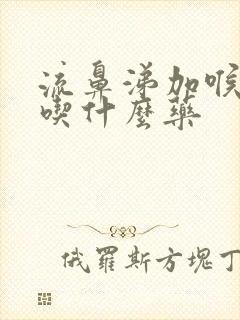 流鼻涕加喉
喫什麼藥
俄羅斯方塊丁